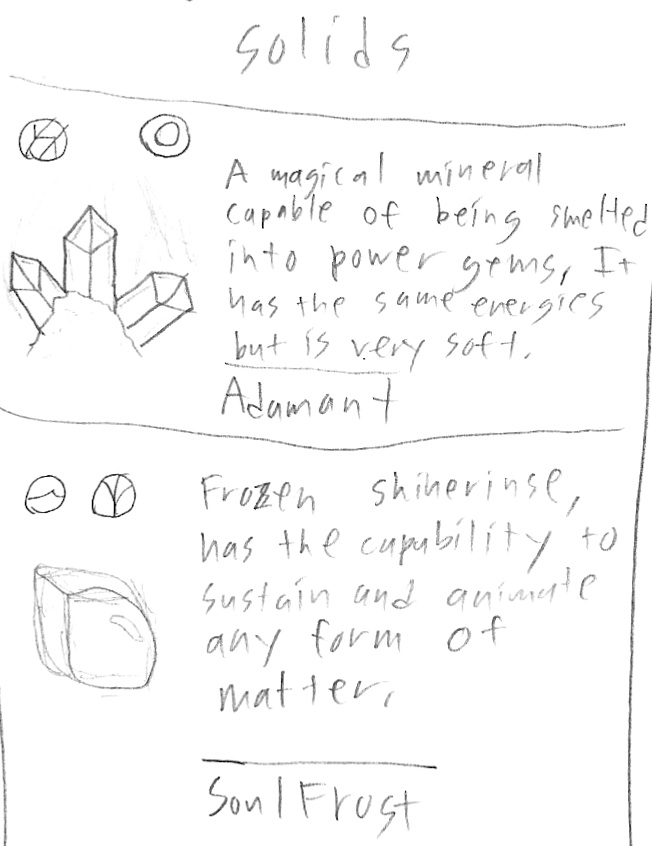 Solids
A magical mineral
capable of being smelted
into power gems, It
has the same energies
but is very soft.
Adamant
Frozen shinerinse,
has the capability to
sustain and animate
any form of
matter.
SoulFrost